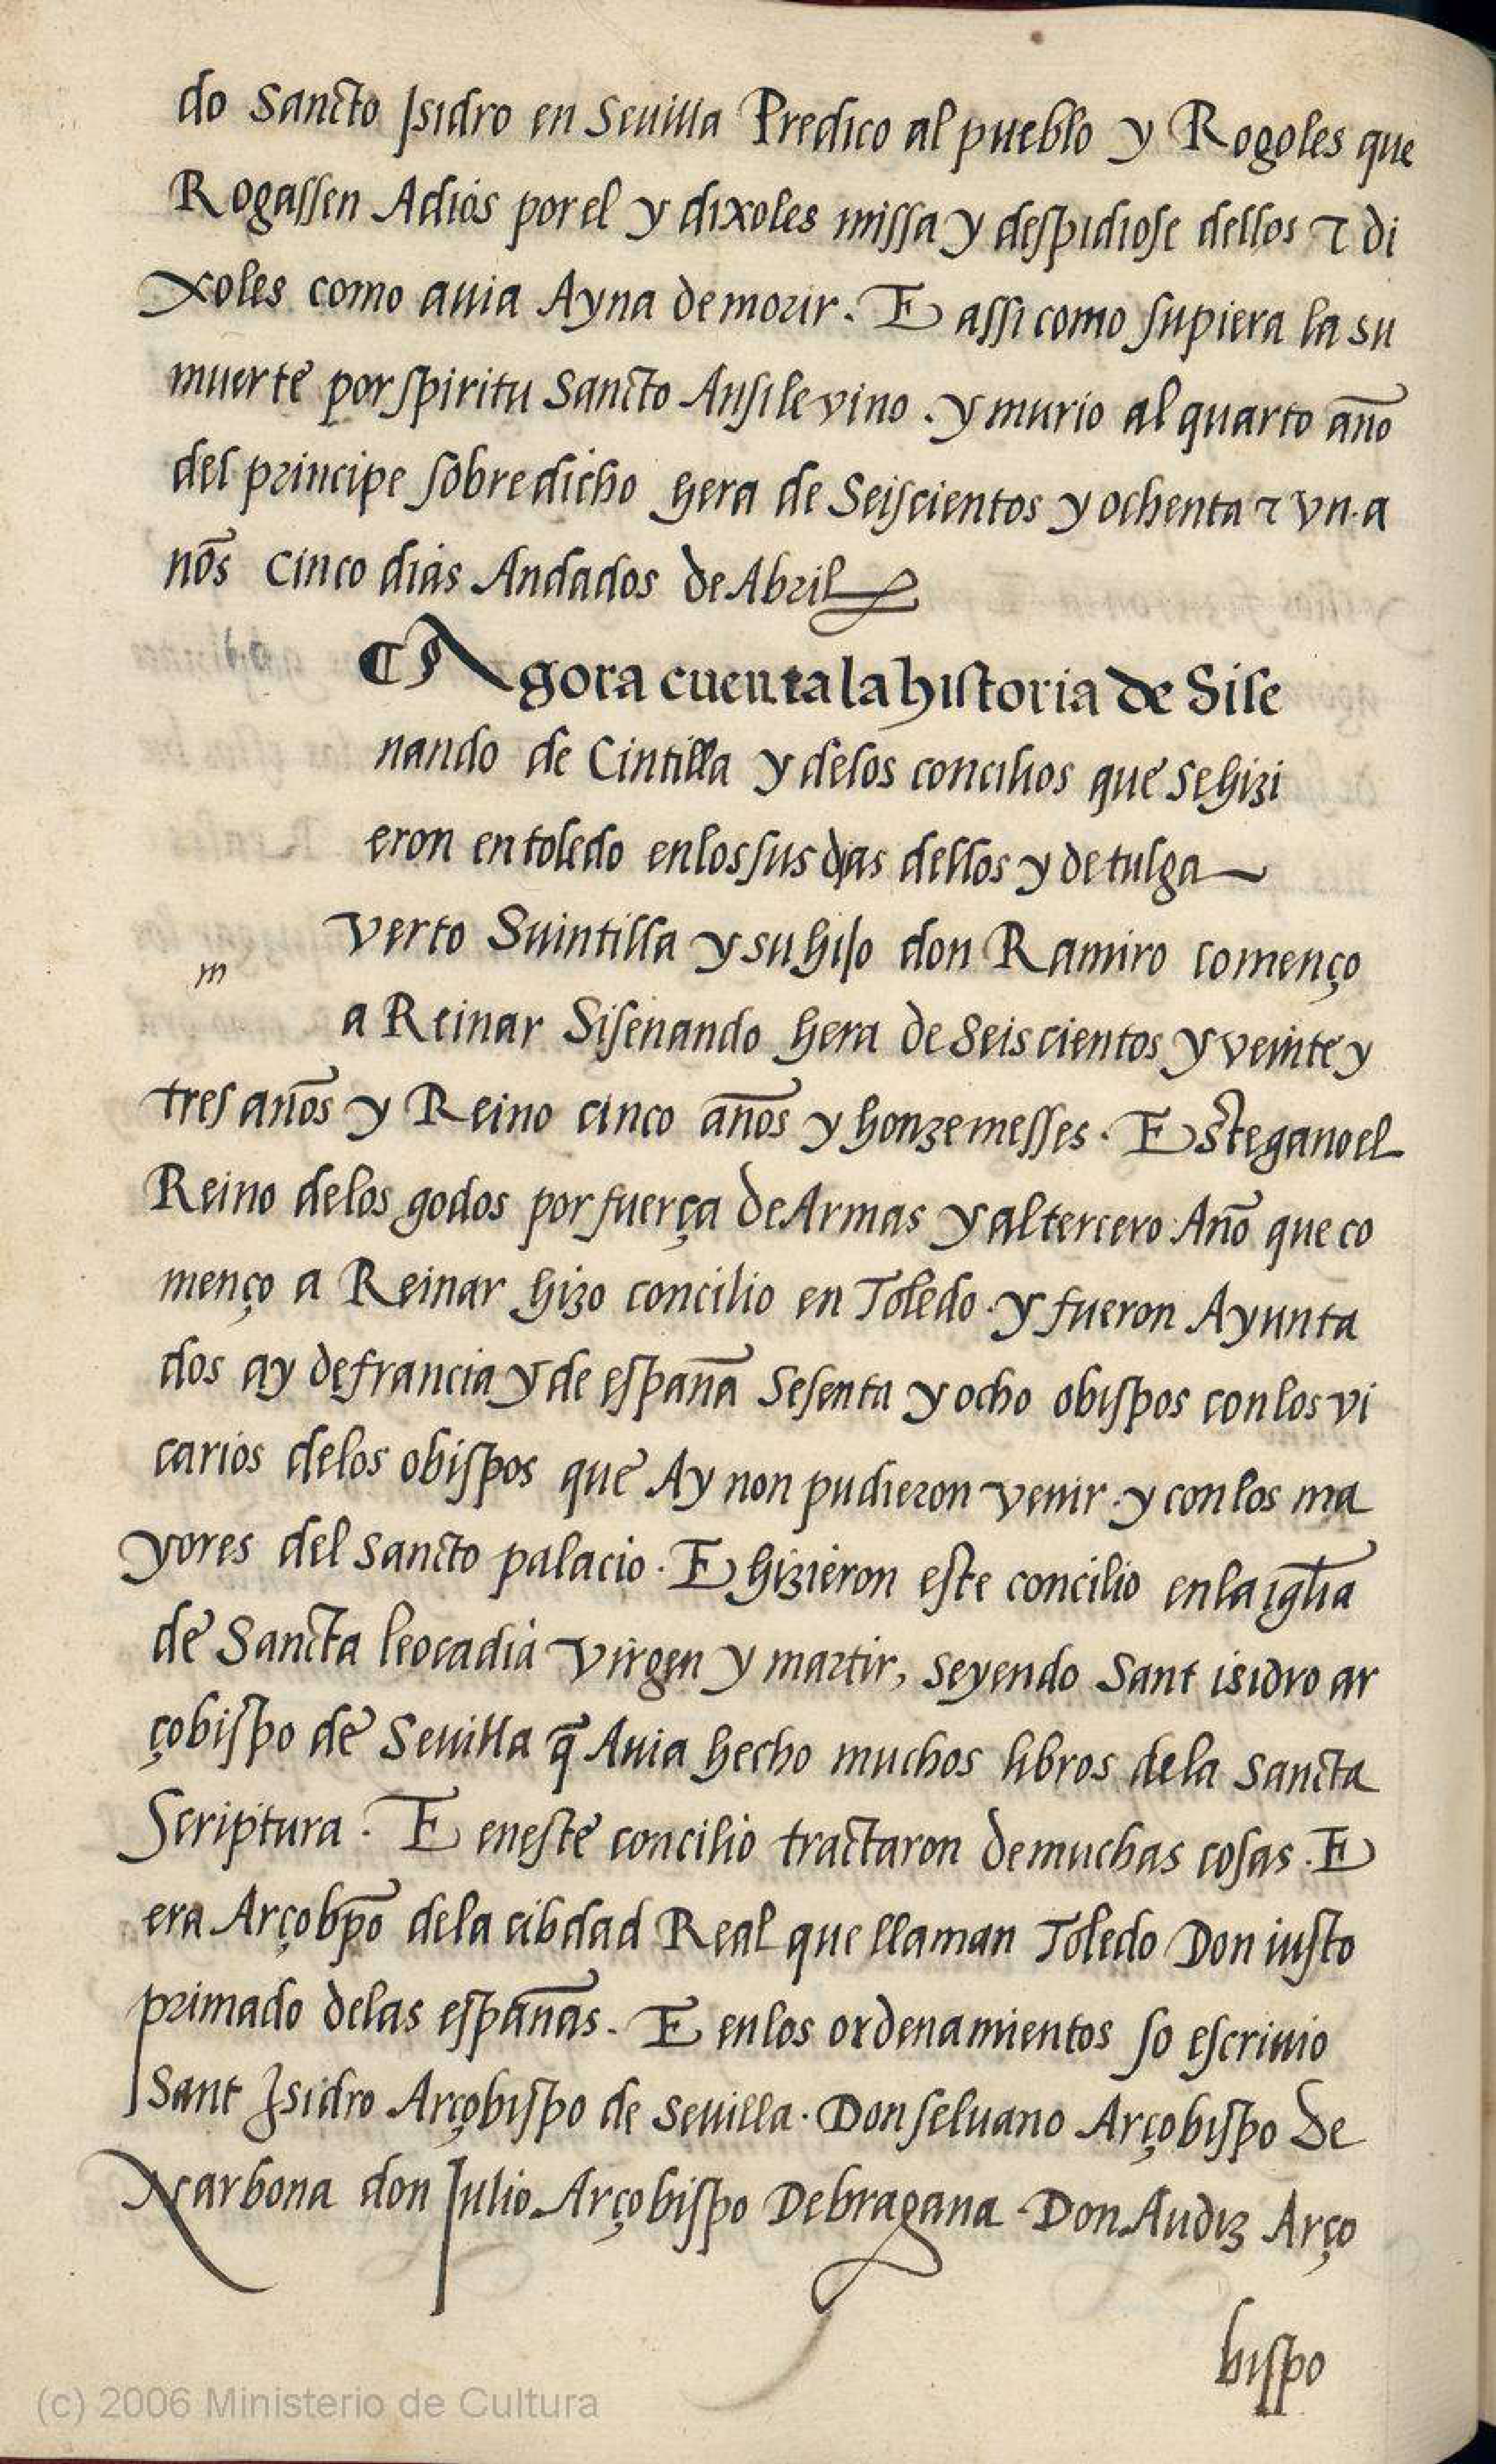 do Sancto Isidro en Seuilla Predico al pueblo y Rogoles que
Rogassen Adios por el y dixoles missa y despidiose dellos τ di
xoles como auia Ayna de morir. E assi como supiera la su
muerte por spiritu Sancto Ansile vino. y murio al quarto año
del principe sobredicho hera de Seiscientos y ochenta τ vn. a
ños cinco dias Andados de Abril
¶ Agora cuenta la historia de Sise
nando de Cintilla y delos concilios que se hizi
eron en toledo en los sus dias dellos y de tulga
m
verto Suintilla y su hijo don Ramiro començo
a Reinar Sisenando hera de Seiscientos y veinte y
tres años y Reino cinco años y honze messes. Este gano el
Reino delos godos por fuerça de Armas y al tercero Año que co
menço a Reinar hizo concilio en Toledo. y fueron Ayunta
dos ay de francia y de españa Sesenta y ocho obispos con los vi
carios delos obispos que Ay non pudieron venir. y con los ma
yores del sancto palacio. E hizieron este concilio en la iglia
de Sancta leocadia virgen y martir, seyendo Sant isidro ar
çobispo de Seuilla q̃ Auia hecho muchos libros dela sancta
Scriptura. E en este concilio tractaron de muchas cosas. E
era Arçobp̃o dela cibdad Real que llaman Toledo Don iusto
primado delas españas. E en los ordenamientos so escriuio
Sant Isidro Arçobispo de seuilla. Don seluano Arçobispo de
Narbona don Julio Arçobispo De bragana. Don Audiz Arço
bispo
(c) 2006 Ministerio de Cultura